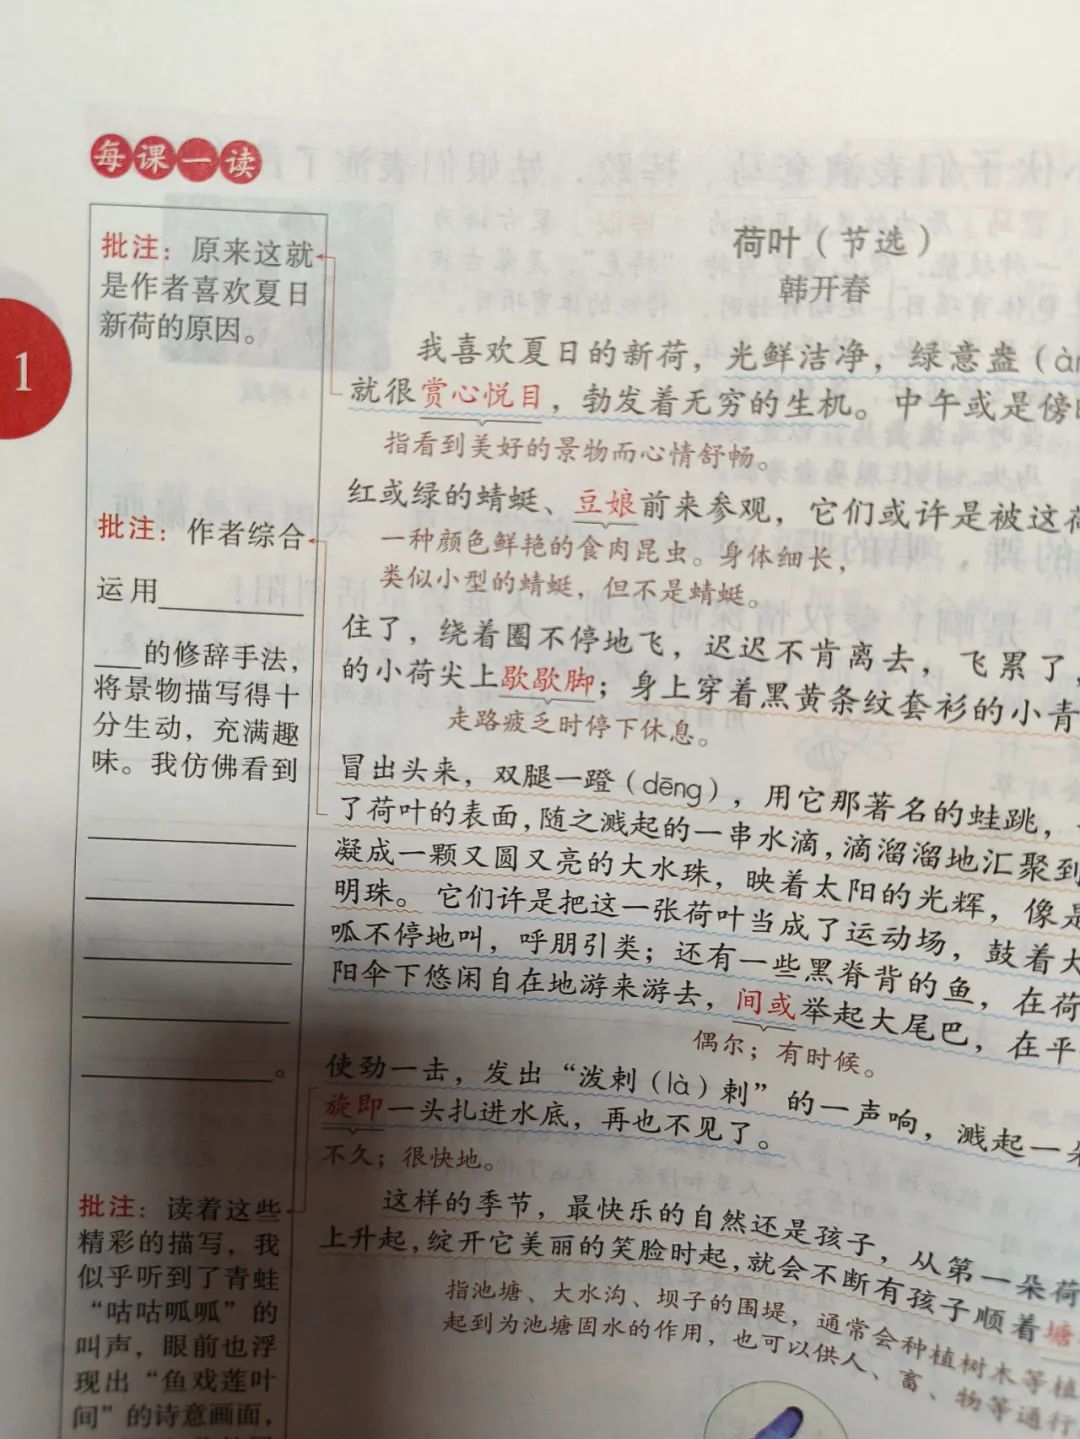 每课一读
批注：原来这就
是作者喜欢夏日
新荷的原因。
1
批注：作者综合
运用
的修辞手法，
将景物描写得十
分生动，充满趣
味。我仿佛看到
。
批注：读着这些
精彩的描写，我
似乎听到了青蛙
“咕咕呱呱”的
叫声，眼前也浮
现出“鱼戏莲叶
间”的诗意画面，
荷叶（节选）
韩开春
我喜欢夏日的新荷，光鲜洁净，绿意盎（àn
就很赏心悦目，勃发着无穷的生机。中午或是傍
指看到美好的景物而心情舒畅。
红或绿的蜻蜓、豆娘前来参观，它们或许是被这荷
一种颜色鲜艳的食肉昆虫。身体细长，
类似小型的蜻蜓，但不是蜻蜓。
住了，绕着圈不停地飞，迟迟不肯离去，飞累了，
的小荷尖上歇歇脚；身上穿着黑黄条纹套衫的小青
走路疲乏时停下休息。
冒出头来，双腿一蹬（dēng），用它那著名的蛙跳，
了荷叶的表面，随之溅起的一串水滴，滴溜溜地汇聚到
凝成一颗又圆又亮的大水珠，映着太阳的光辉，像是
明珠。它们许是把这一张荷叶当成了运动场，鼓着大
呱不停地叫，呼朋引类；还有一些黑脊背的鱼，在荷
阳伞下悠闲自在地游来游去，间或举起大尾巴，在平
偶尔；有时候。
使劲一击，发出“泼剌（là）剌”的一声响，溅起一朵
旋即一头扎进水底，再也不见了。
不久；很快地。
这样的季节，最快乐的自然还是孩子，从第一朵荷
上升起，绽开它美丽的笑脸时起，就会不断有孩子顺着塘
指池塘、大水沟、坝子的围堤，通常会种植树木等植
起到为池塘固水的作用，也可以供人、畜、物等通行